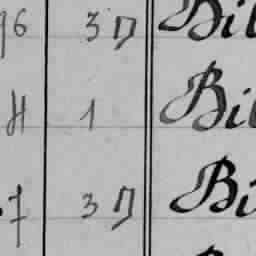 96 3 D Bil
H 1 Bil
7 3 D Bi